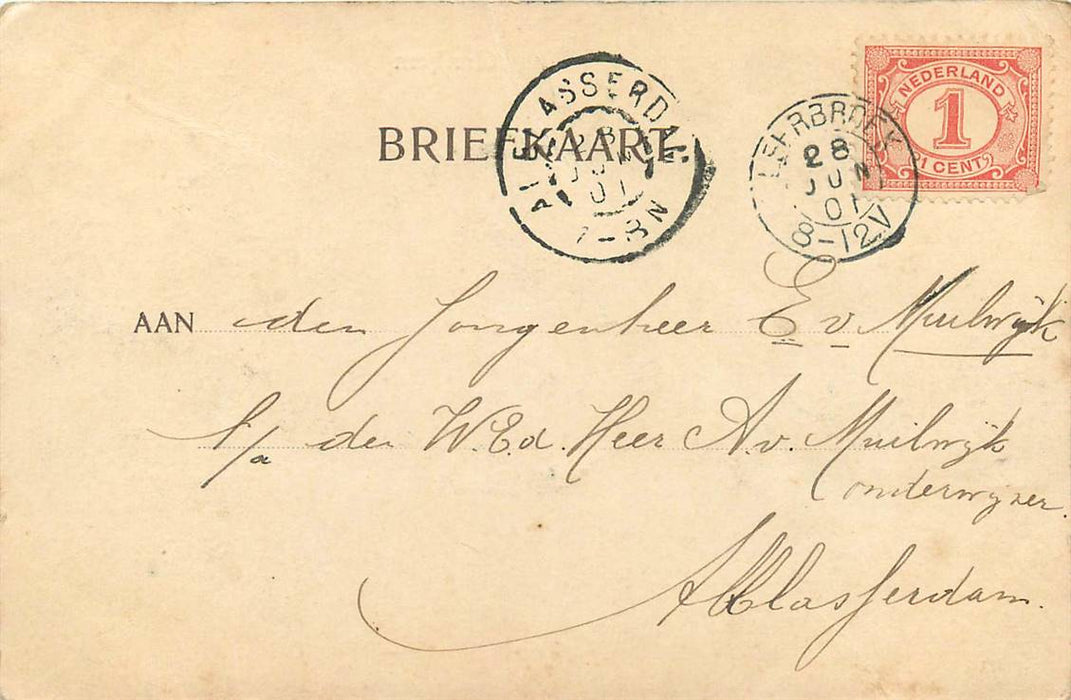 NEDERLAND
1
1 CENT
ALBLASSERDAM
28
JUN
01
7-8N
LEERBROEK
28
JUN
01
8-12V
BRIEFKAART
AAN den Jongenheer E v Muilwijk
p/a den W.Ed. Heer A. v. Muilwijk
onderwyzer.
Alblasserdam.